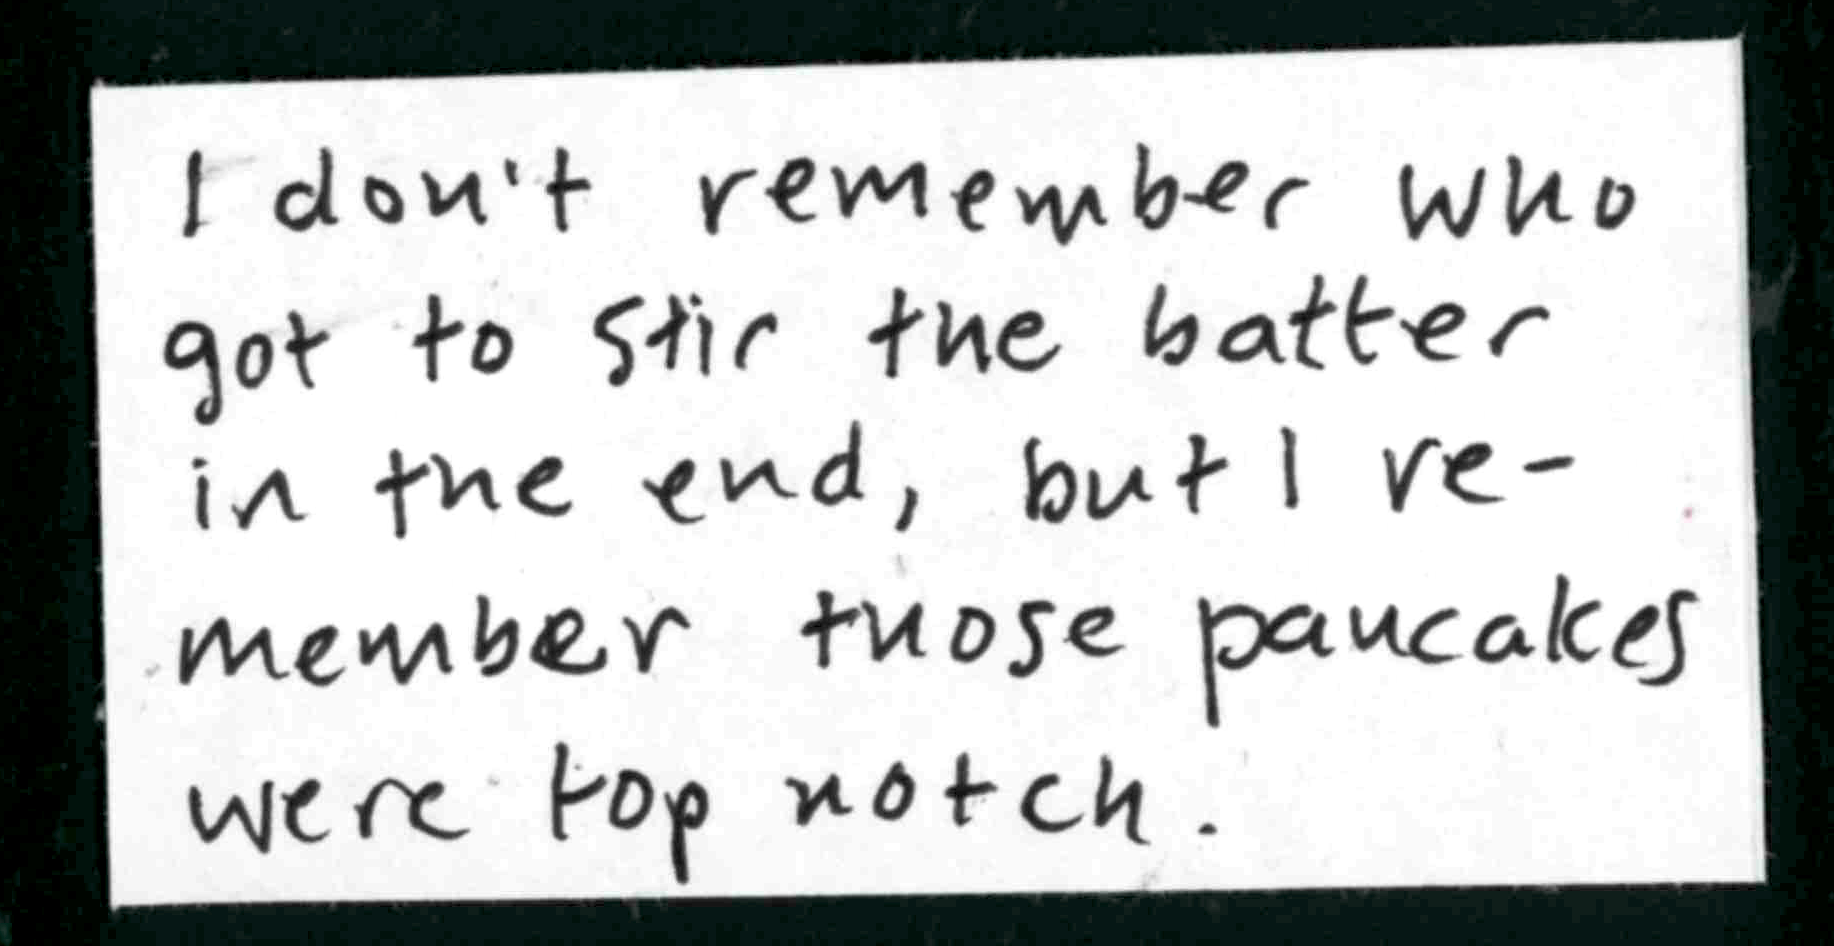 I don't remember who
got to stir the batter
in the end, but I re-
member those pancakes
were top notch.